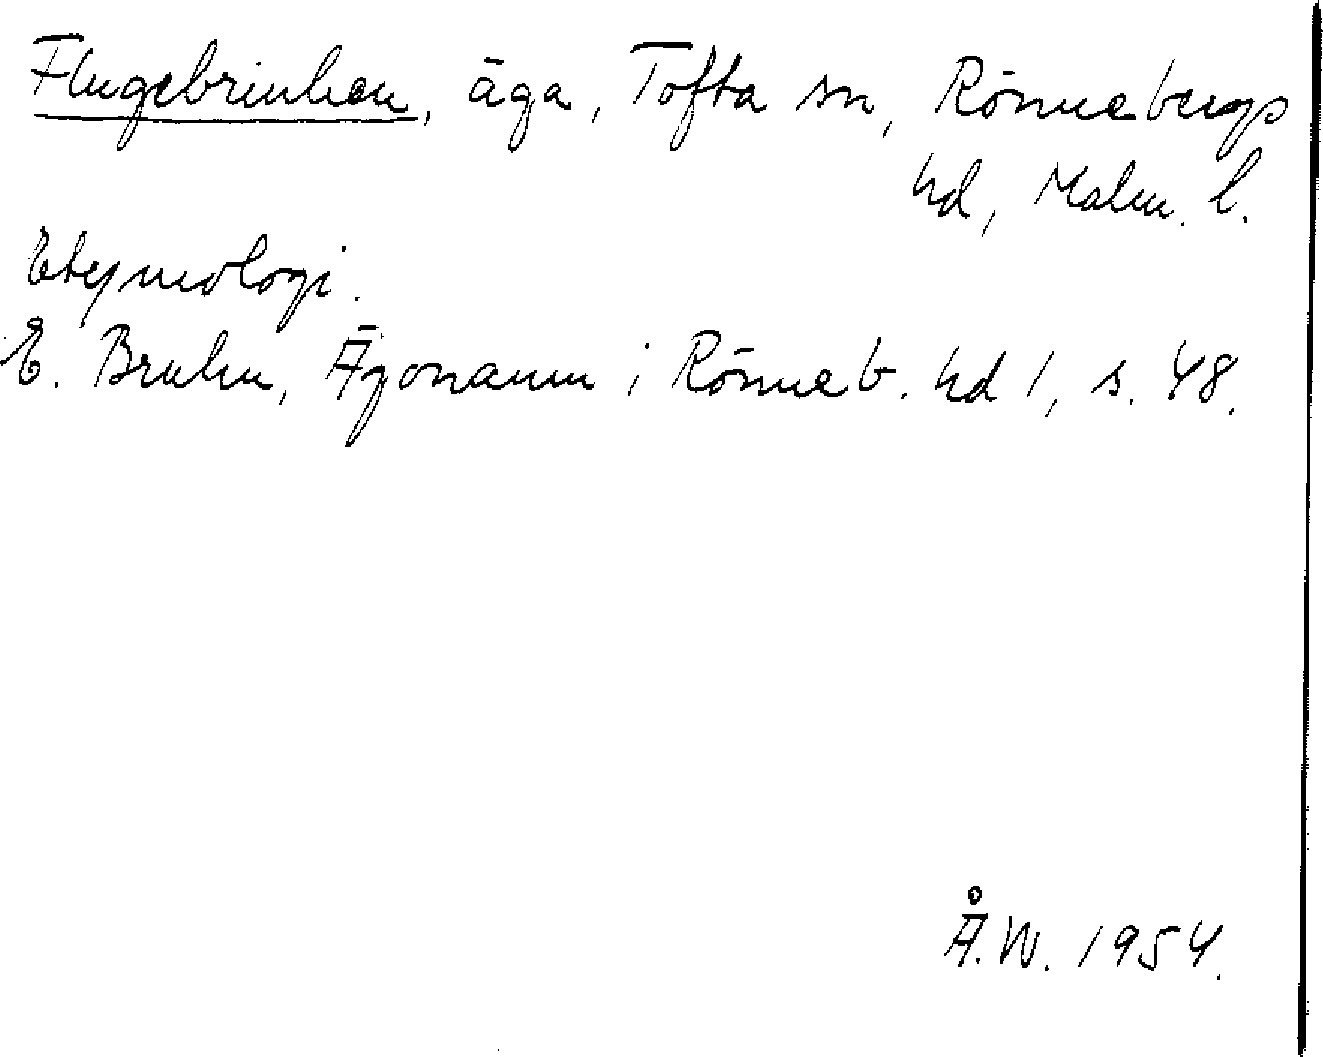 Flugebrinken, äga, Tofta sn, Rönnebergs
hd, Malm. l.
Etymologi.
E. Bruhn, Ägonamn i Rönneb. hd 1, s. 48.
Å.W. 1954.